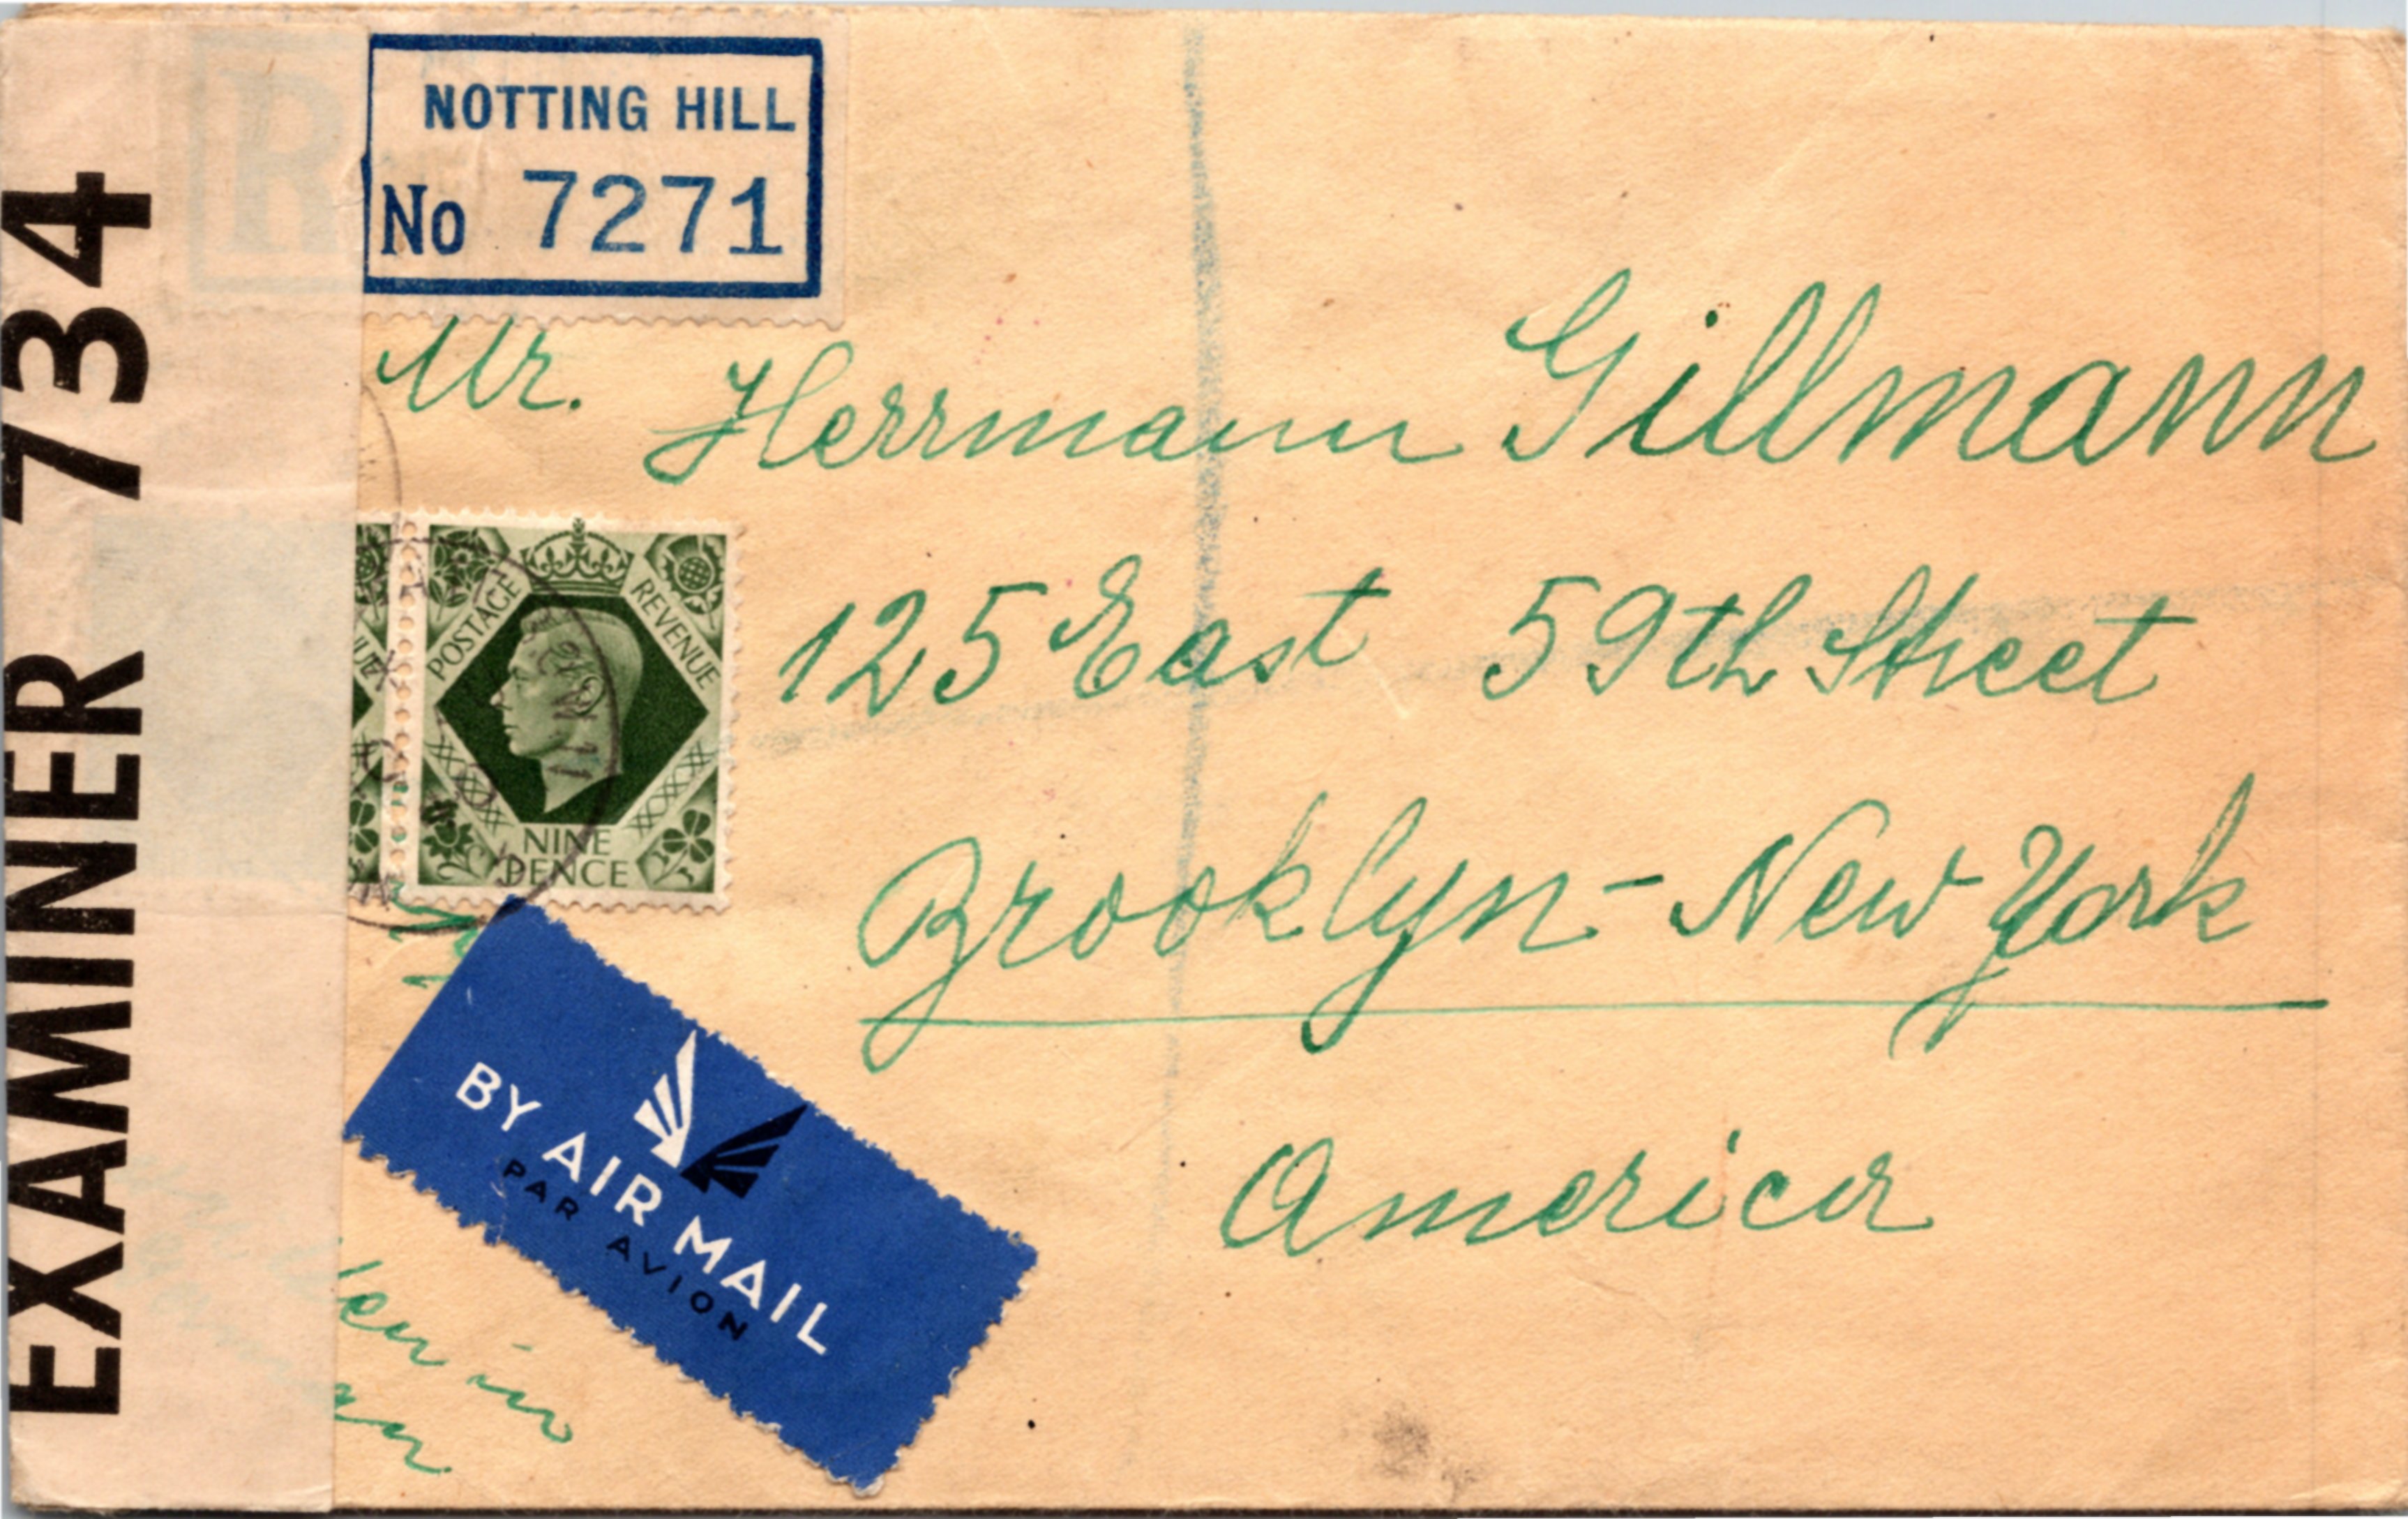 EXAMINER 734
R
NOTTING HILL
No 7271
Mr. Herrmann Gillmann
POSTAGE REVENUE
NINE
PENCE
125 East 59th Street
Brooklyn - New York
America
BY AIR MAIL
PAR AVION